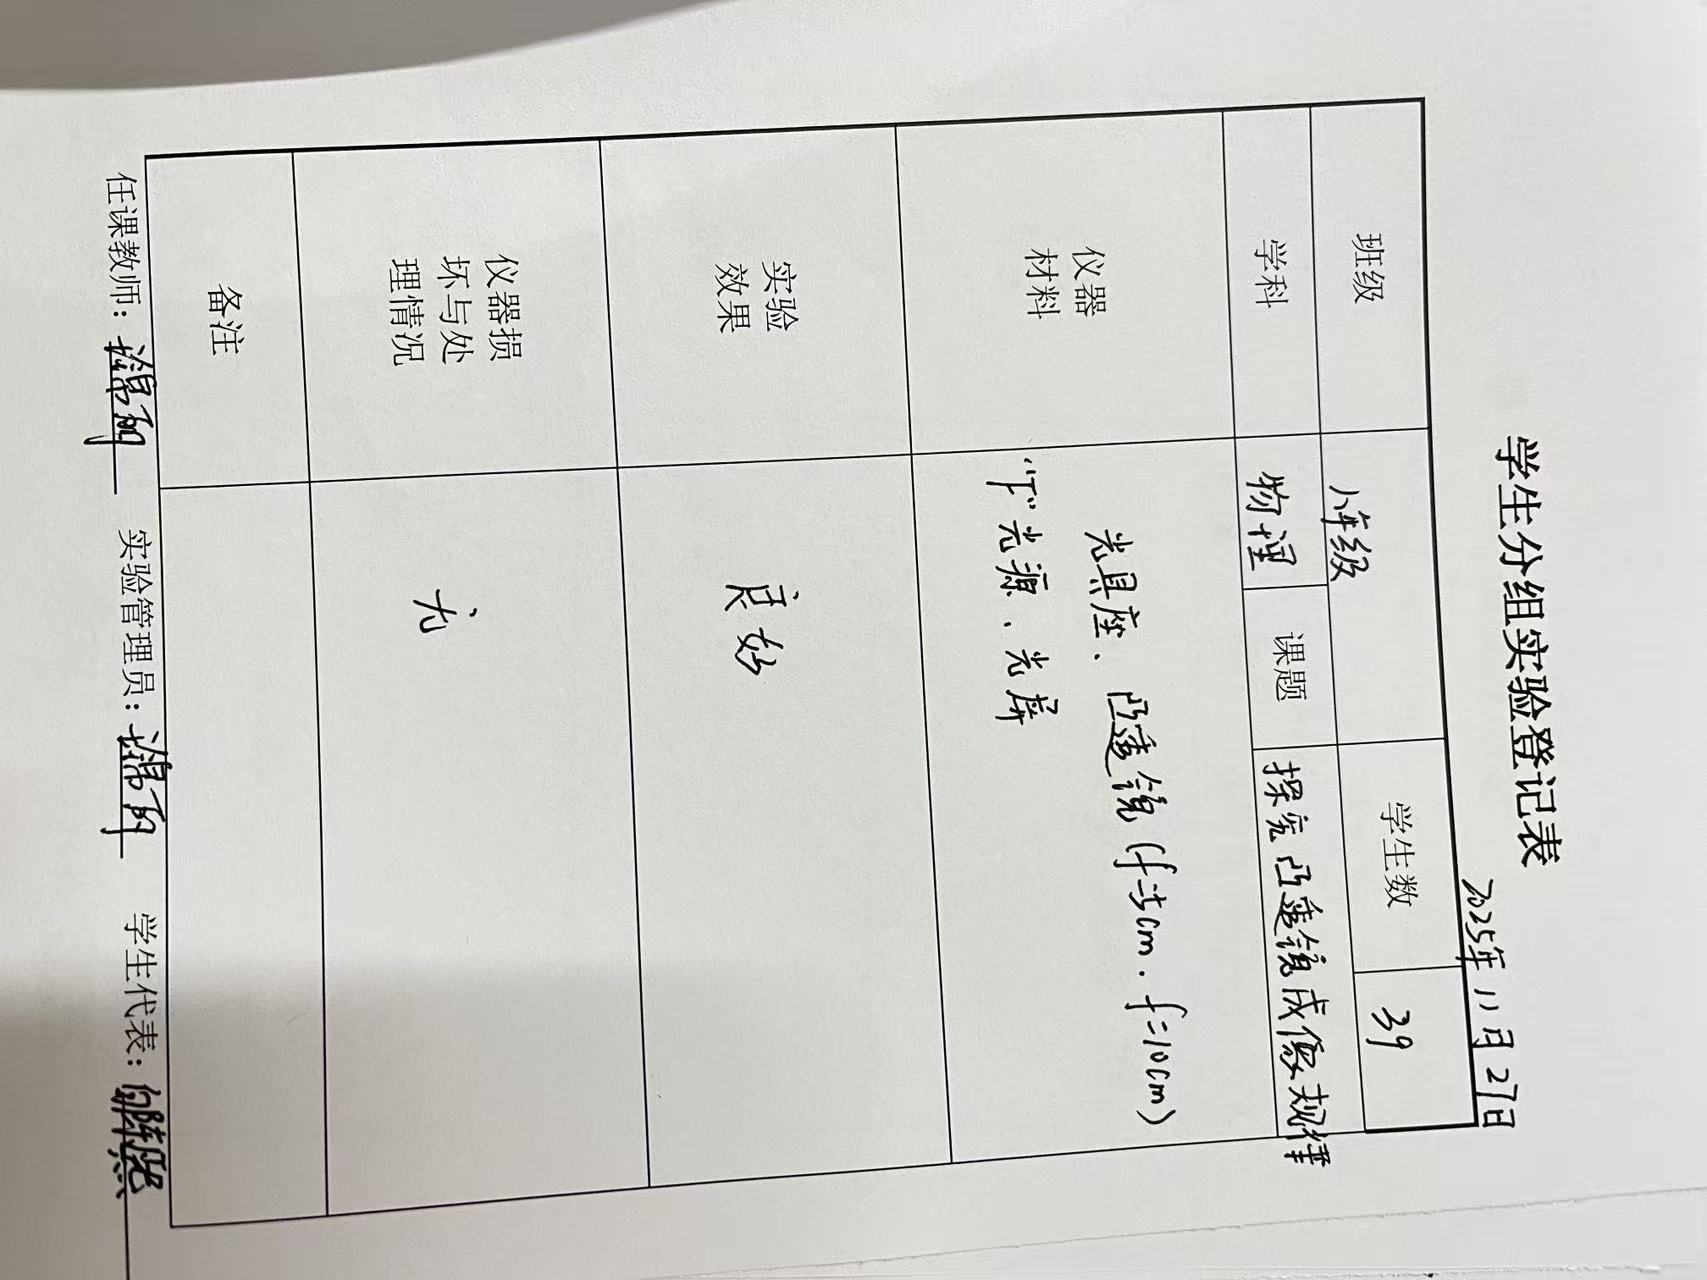 学生分组实验登记表
2025年11月27日
班级 八年级 学生数 39
学科 物理 课题 探究凸透镜成像规律
仪器
材料
光具座、凸透镜(f=5cm.f=10cm)
"F"光源、光屏
实验
效果
良好
仪器损
坏与处
理情况
无
备注
任课教师: 实验管理员: 学生代表: